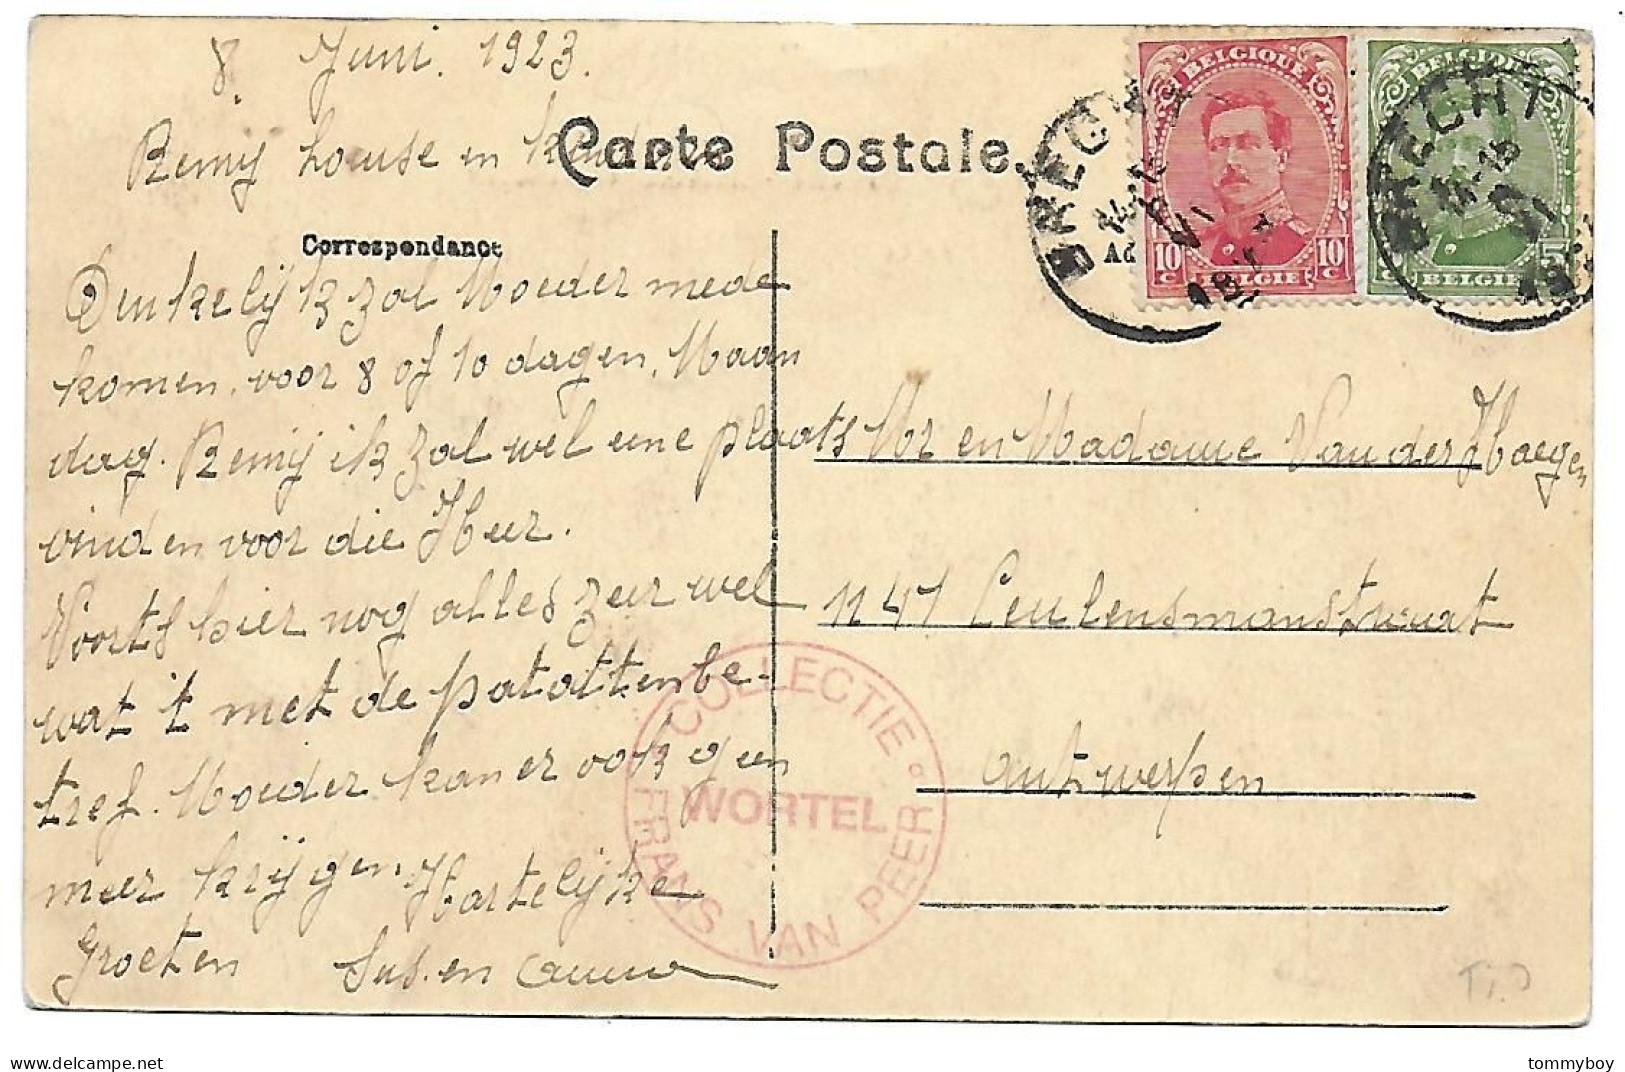 8 Juni. 1923.
Remij Louise en
Carte Postale.
Correspondance
Denkelijk zal Moeder mede
komen, voor 8 of 10 dagen, Maan
dag. Remij ik zal wel eene plaats
vinden voor die Heer.
Voorts hier nog alles zeer wel
wat 't met de patattenbe-
tref. Moeder kan er ook geen
meer krijgen Hartelijke
Groeten Sus. en
BELGIQUE
10 C 10 C
BELGIE
BELGIQUE
5 C
BELGIE
BRECHT
14-15
VI
BRECHT
14-15
VI
Ad
Mr en Madame Van der Haegen
N 47 Ceulensmanstraat
Antwerpen
COLLECTIE
WORTEL
FRANS VAN PEER
delcampe.net
tommyboy